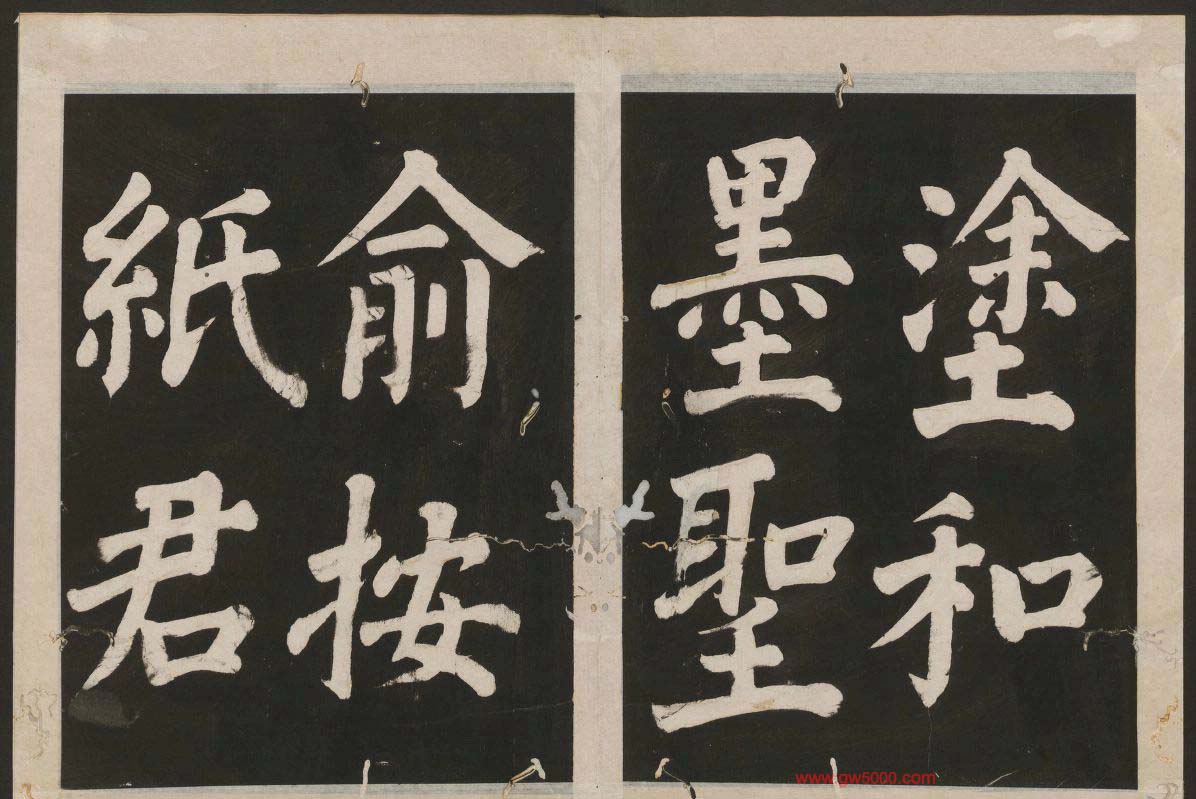 塗和
墨聖
俞按
紙君
www.gw5000.com